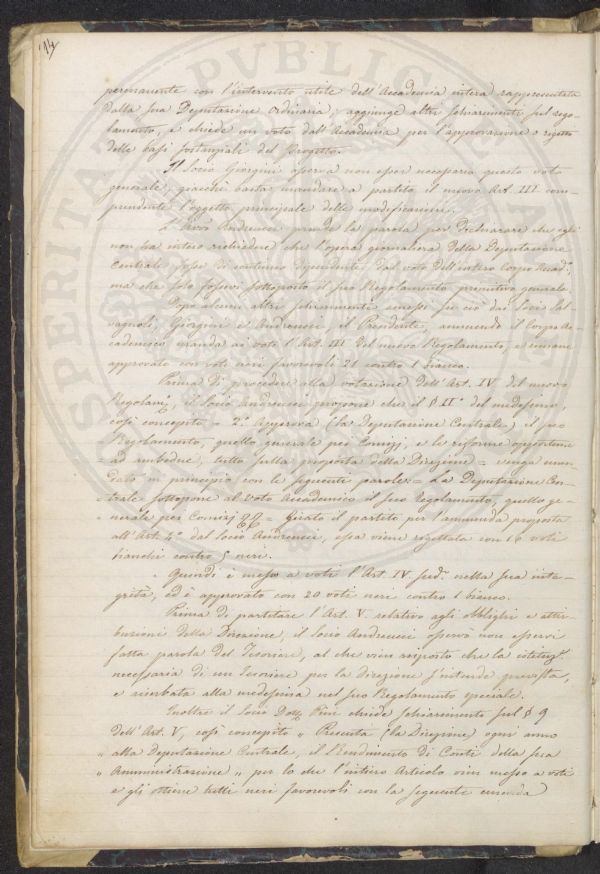 14
permanente con l'intervento utile dell'Accademia intera rappresentata
dalla sua Deputazione ordinaria, aggiunge altri schiarimenti sul rego-
lamento, e chiede un voto dall'Accademia per l'approvazione o rigetto
delle basi sostanziali del Progetto.
Il Socio Giorgini osserva non esser necessario questo voto
generale, giacchè basta mandare a partito il nuovo Art. III com-
prendente l'oggetto principale delle modificazioni.
L' Andreucci prende la parola per dichiarare che egli
non ha inteso richiedere che l'opera giornaliera della Deputazione
Centrale fosse di continuo dipendente dal voto dell'intero Corpo Accad.
ma che solo fossevi sottoposto il suo Regolamento primitivo generale.
Dopo alcuni altri schiarimenti emessi su ciò dai Soci Sal-
vagnoli, Giorgini e Andreucci, il Presidente, annuendo il Corpo Ac-
cademico manda ai voti l'Art. III del nuovo Regolamento, e rimane
approvato con voti neri favorevoli 21 contro 1 bianco.
Prima di procedere alla votazione dell'Art. IV del nuovo
Regolam., il Socio Andreucci propone che il § II° del medesimo,
così concepito = 2.° Approva (la Deputazione Centrale) il suo
Regolamento, quello generale pei Comizj, e le riforme opportune
= ad ambedue, tutto sulla proposta della Direzione = venga emen-
dato in principio con le seguenti parole = La Deputazione Cen-
trale sottopone al voto Accademico il suo regolamento, quello ge-
= nerale pei Comizj = Girato il partito per l'ammenda proposta
all'Art. 4° dal Socio Andreucci, essa viene rigettata con 16 voti
bianchi contro 5 neri.
Quindi è messo a voti l'Art. IV sud. nella sua inte-
grità, ed è approvato con 20 voti neri contro 1 bianco.
Prima di partitare l'Art. V. relativo agli obblighi e attri-
buzioni della Direzione, il Socio Andreucci osservò non esservi
fatta parola del Tesoriere, al che vien risposto che la istituz.
necessaria di un Tesoriere per la direzione s'intende prevista,
e riserbata alla medesima nel suo Regolamento speciale.
Inoltre il Socio Dott. Pini chiede schiarimento sul § 9
dell'Art. V, così concepito " Presenta (la Direzione) ogni anno
" alla Deputazione Centrale, il Rendimento di Conti della sua
" Amministrazione " per lo che l'intiero Articolo vien messo a voti
e gli ottiene tutti neri favorevoli con la seguente emenda